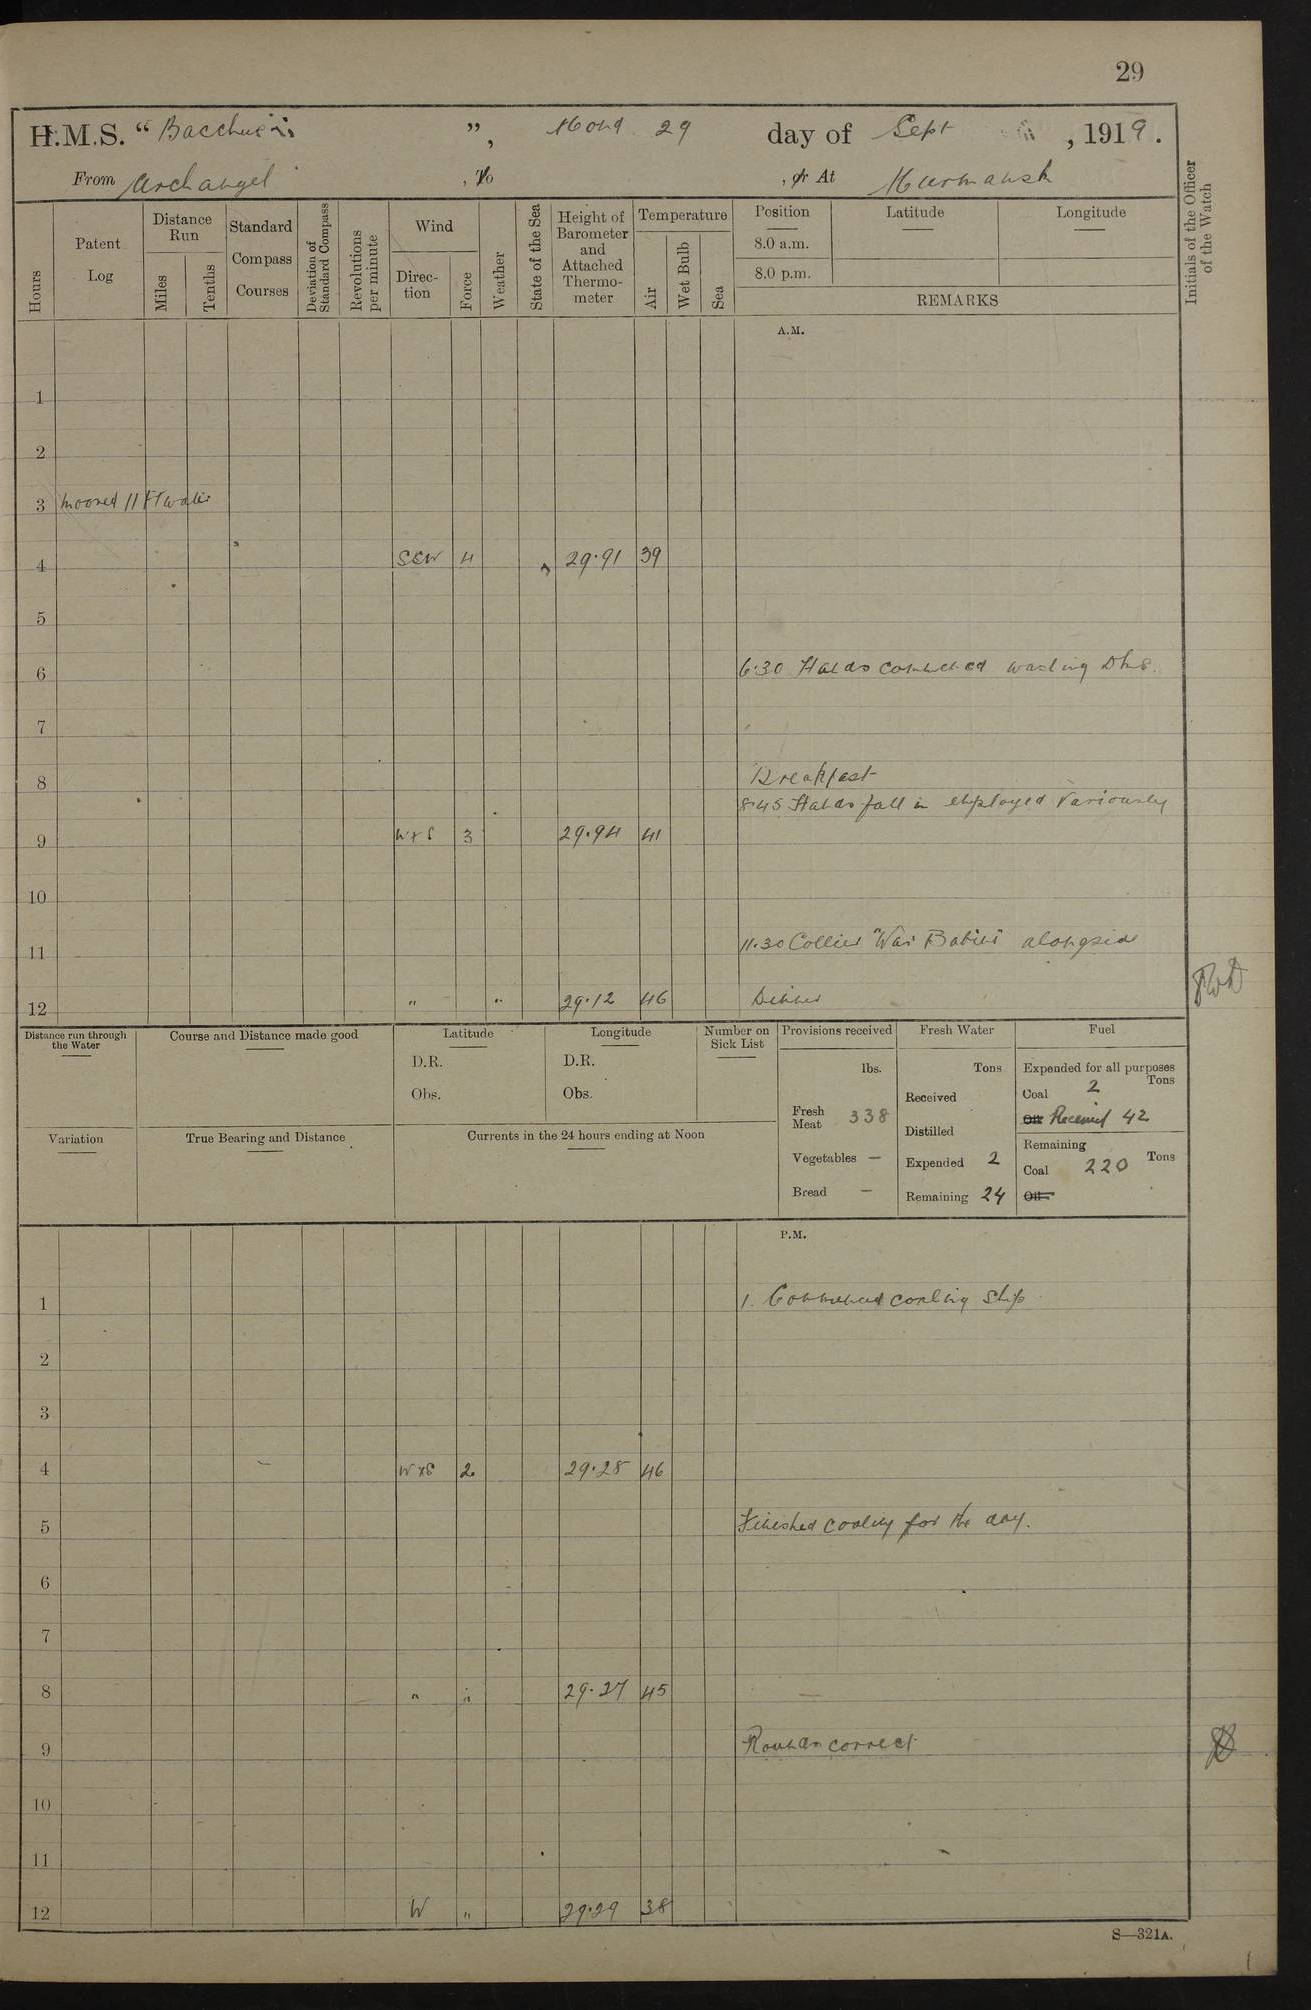 29
H.M.S. “ Bacchus ”, Mond 29 day of Sept , 1919.
From Archangel , To , or At Murmansk
Hours
Patent Log
Distance Run
Miles
Tenths
Standard Compass Courses
Deviation of Standard Compass
Revolutions per minute
Wind
Direction
Force
Weather
State of the Sea
Height of Barometer and Attached Thermometer
Temperature
Air
Wet Bulb
Sea
Position
8.0 a.m.
8.0 p.m.
Latitude
Longitude
REMARKS
Initials of the Officer of the Watch
A.M.
1
2
3 moored 11 ft water
4 SSW 4 29.91 39
5
6 6.30 Hands commenced washing Dks.
7
8 Breakfast
8.45 Hands fall in employed variously
9 WxS 3 29.94 41
10
11 11.30 Collier "War Babies" alongside
12 " " 29.12 46 Dinner
Distance run through the Water
Course and Distance made good
Latitude
D.R.
Obs.
Longitude
D.R.
Obs.
Number on Sick List
Provisions received
lbs.
Fresh Meat 338
Vegetables —
Bread —
Fresh Water
Tons
Received
Distilled
Expended 2
Remaining 24
Fuel
Expended for all purposes
Tons
Coal 2
Oil Received 42
Remaining
Tons
Coal 220
Oil
Variation
True Bearing and Distance
Currents in the 24 hours ending at Noon
P.M.
1 1. Commenced coaling ship
2
3
4 WxS 2 29.28 46
5 Finished coaling for the day.
6
7
8 " " 29.27 45
9 Rounds correct
10
11
12 W " 29.29 38
S—321A.